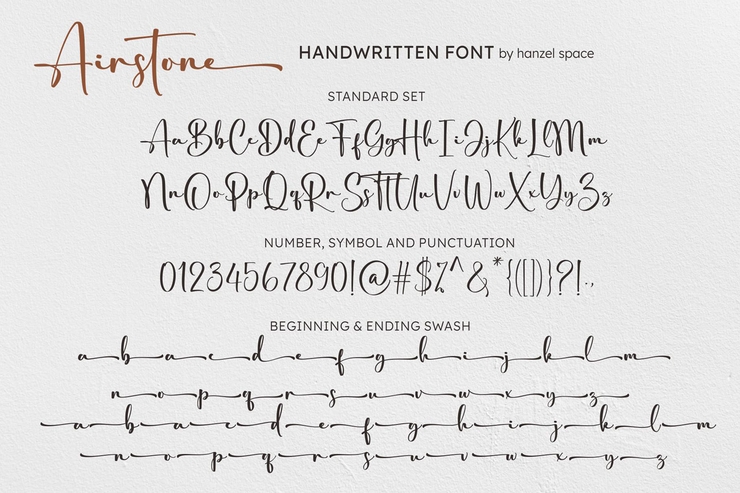 Airstone
HANDWRITTEN FONT by hanzel space
STANDARD SET
AaBbCcDdEe FfGgHhIiJjKkLlMm
NnOoPpQqRrSsTtUuVvWwXxYyZz
NUMBER, SYMBOL AND PUNCTUATION
01234567890!@#$%^&*{([])}?!.,
BEGINNING & ENDING SWASH
a b a c d e f g h i j k l m
n o p q r s u v w x y z
a b a c d e f g h i j k l m
n o p q r s u v w x y z